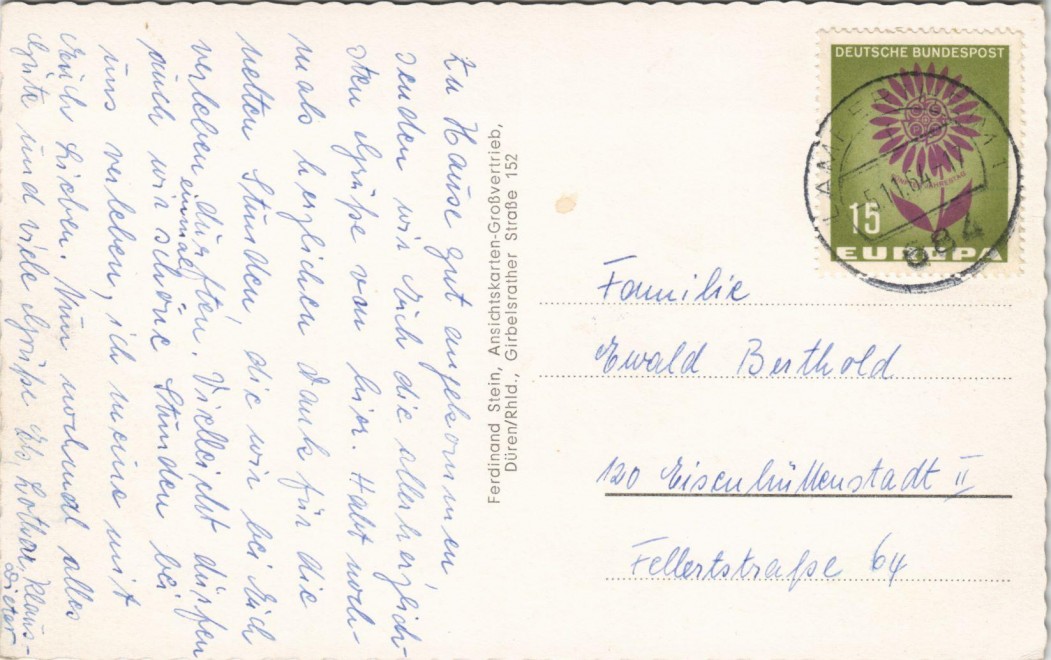 Zu Hause gut angekommen
senden wir Euch die allerherzlich-
sten Grüße von hier. Habt noch-
mals herzlichen Dank für die
netten Stunden, die wir bei Euch
verleben durften. Vielleicht dürfen
auch wir einmal schöne Stunden bei
uns verleben, ich meine mit
Euch Lieben. Nun nochmal alles
Gute und viele Grüße Lothar, Klaus-
Dieter
Ferdinand Stein, Ansichtskarten-Großvertrieb,
Düren/Rhld., Girbelsrather Straße 152
DEUTSCHE BUNDESPOST
15
EUROPA
684
Familie
Ewald Berthold
120 Eisenhüttenstadt II
Fellertstraße 64